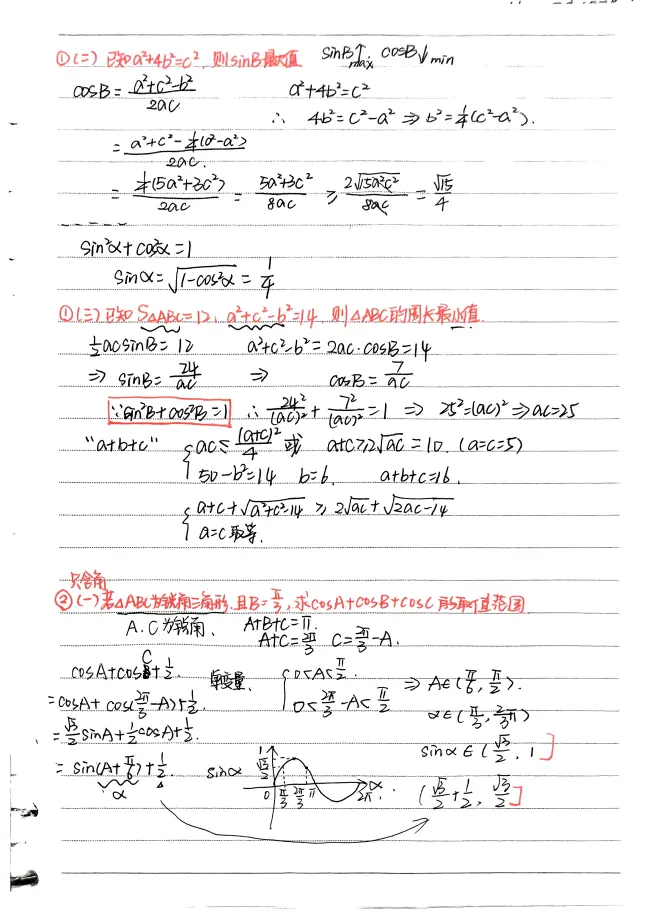 ①(二) 已知a²+4b²=c², 则sinB最大值 sinB↑max cosB↓min
cosB = (a²+c²-b²)/2ac a²+4b²=c²
∴ 4b²=c²-a² ⇒ b²=¼(c²-a²).
= (a²+c²-¼(c²-a²))/2ac.
= ¼(5a²+3c²)/2ac = (5a²+3c²)/8ac ≥ 2√(15a²c²)/8ac = √15/4
sin²α+cos²α=1
sinα=√(1-cos²α) = 1/4
①(三) 已知 S△ABC=12, a²+c²-b²=14, 则△ABC的周长最小值.
½acsinB=12 a²+c²-b²=2ac·cosB=14
⇒ sinB=24/ac ⇒ cosB=7/ac
∵sin²B+cos²B=1 ∴ 24²/(ac)²+7²/(ac)²=1 ⇒ 25²=(ac)² ⇒ac=25
"a+b+c" { ac≤(a+c)²/4 或 a+c≥2√ac=10. (a=c=5)
50-b²=14 b=6. a+b+c=16.
{ a+c+√(a²+c²-14) ≥ 2√ac+√(2ac-14)
a=c取等.
只含角
②(一) 若△ABC为锐角三角形.且B=π/3, 求cosA+cosB+cosC的取值范围
A.C为锐角. A+B+C=π.
A+C=2π/3 C=2π/3-A.
cosA+cosC+½. 单变量. { 0<A<π/2 ⇒ A∈(π/6,π/2).
=cosA+cos(2π/3-A)+½. 0<2π/3-A<π/2
= √3/2sinA+½cosA+½. α∈(π/3,2/3π)
= sin(A+π/6)+½. sinα∈(√3/2,1]
α
sinα 1 √3/2 0 π/3 2π/3 π 2π α
(√3/2+1/2, √3/2]